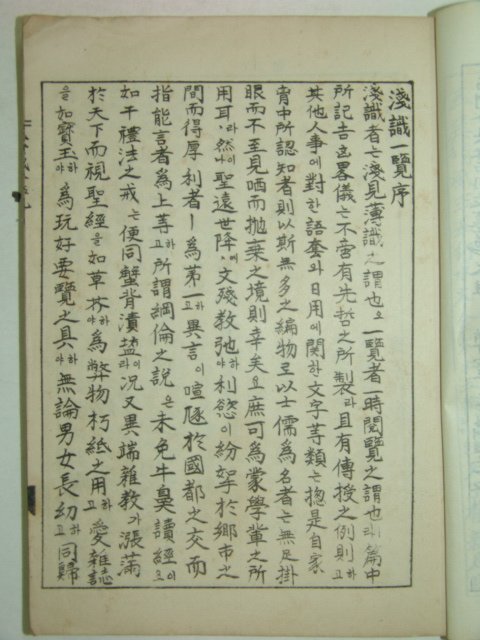 淺識一覽序
淺識者는淺見薄識之謂也오一覽者一時閱覽之謂也라篇中
所記吉凶畧儀는不啻有先哲之所製라且有傳授之例則하고
其他人事에對한語套와日用에關한文字等類는揔是自家
胷中所認知者則以斯無多之編物로以士儒爲名者는無足掛
眼而不至見哂而抛棄之境則幸矣요庶可爲蒙學輩之所
用耳라然이나聖遠世降에文殘敎弛하야利慾이紛挐於鄕市之
間而得厚利者ㅣ爲第一하고異言이喧豗於國都之交而
指能言者爲上等하고所謂綱倫之說은未免牛臭讀經이오
如干禮法之戒는便同蟹背漬塩이라況又異端雜敎가漲滿
於天下而視聖經을如草芥하야爲弊物朽紙之用하고愛雜誌
을如寶玉하야爲玩好要覽之具하야無論男女長幼하고同歸